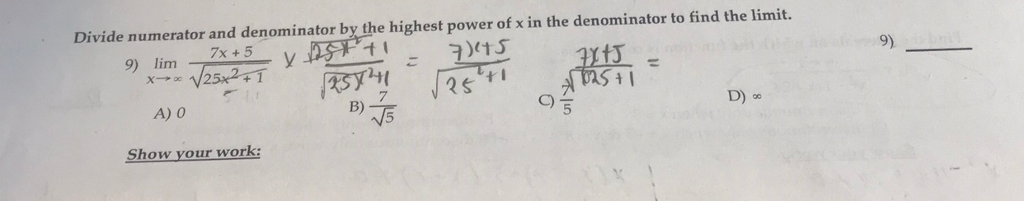 Divide numerator and denominator by the highest power of x in the denominator to find the limit.
9) lim x→∞ 7x + 5 / √25x² + 1 × √25x² + 1 / √25x²+1 = 7x+5 / √25²+1 7x+5 / √625+1 = 9)
A) 0 B) 7/√5 C) 7/5 D) ∞
Show your work: